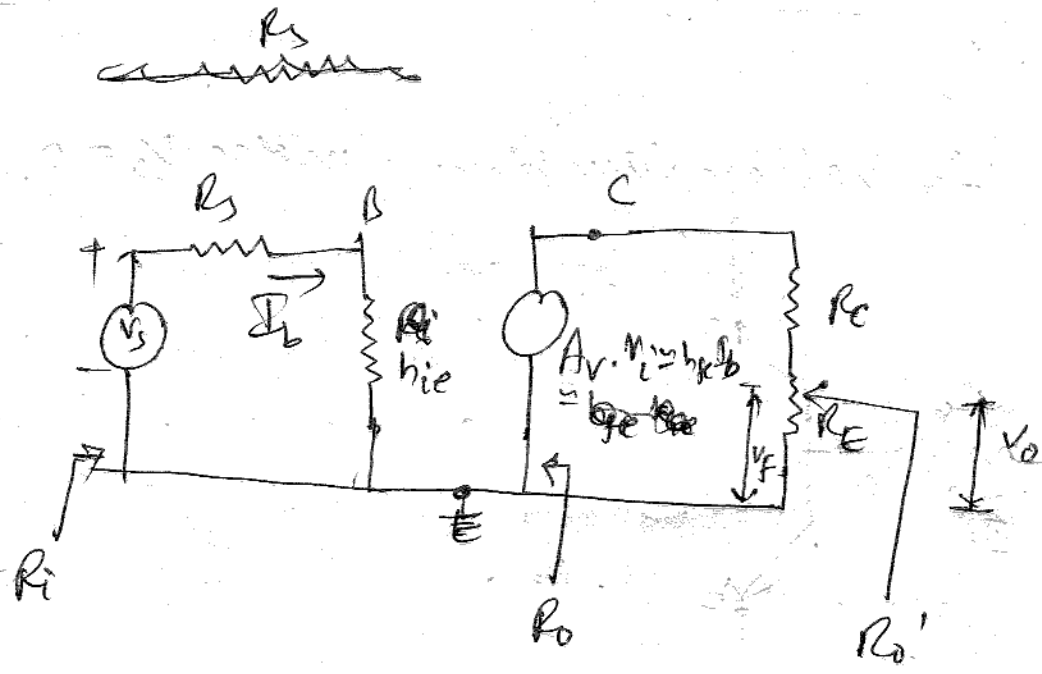 Rs
Rs
B
C
+
Vs
-
Ib
hie
Rc
Av. Vi ≃ hfe Ib
≃
RE
Vf
Vo
E
Ri
Ro
Ro'